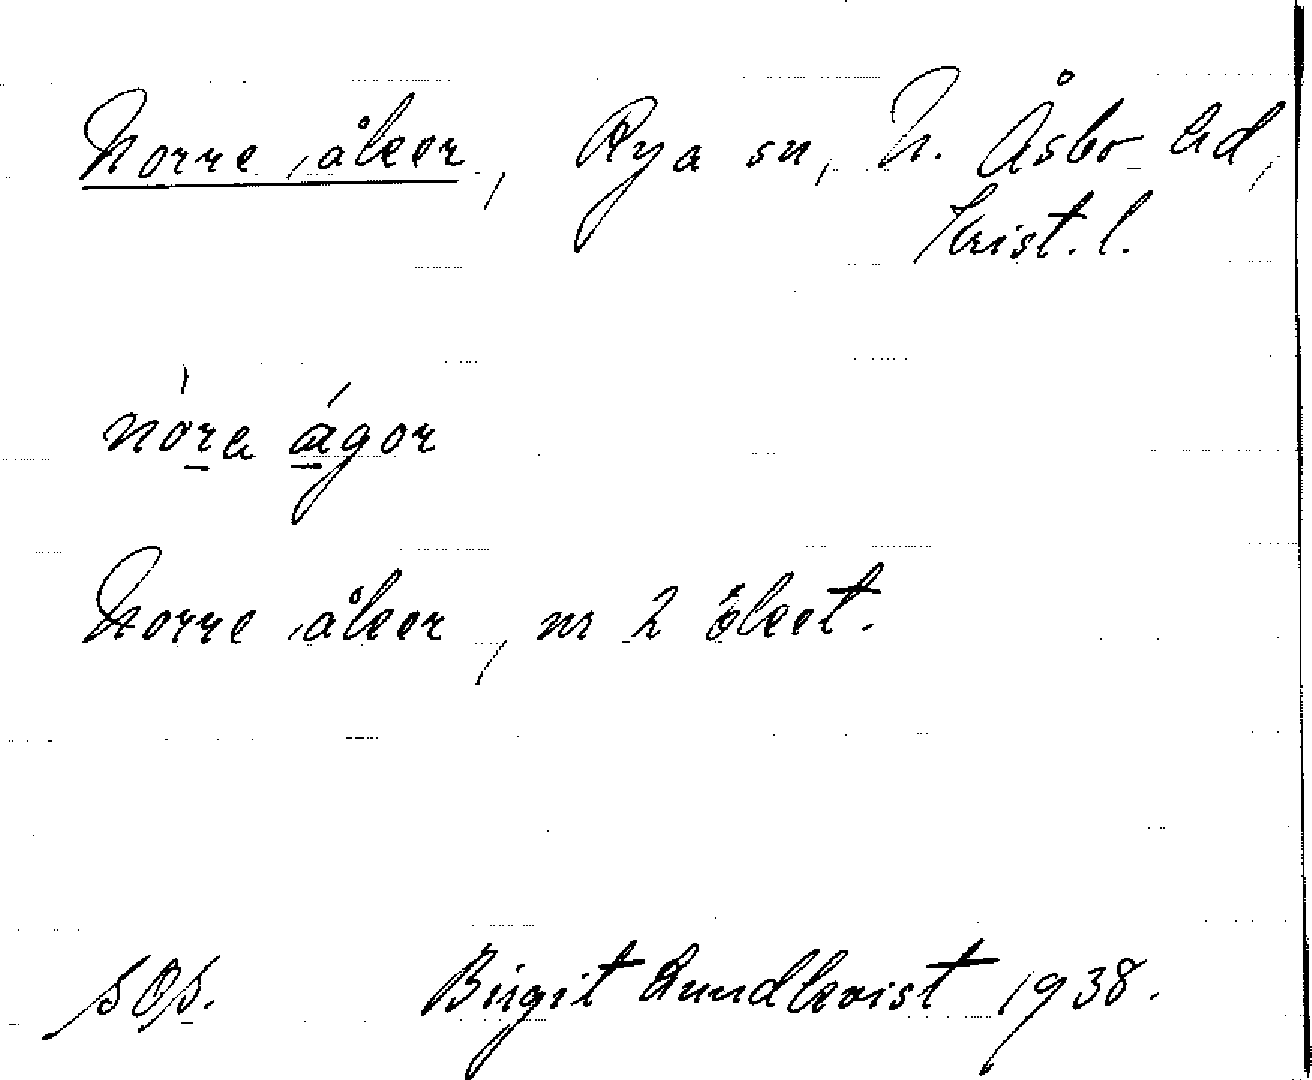 Norre åker, Rya sn, N. Åsbo hd,
Krist. l.
nóra ágor
Norre åker, nr 2 Öket.
SOS. Birgit Lundkvist 1938.